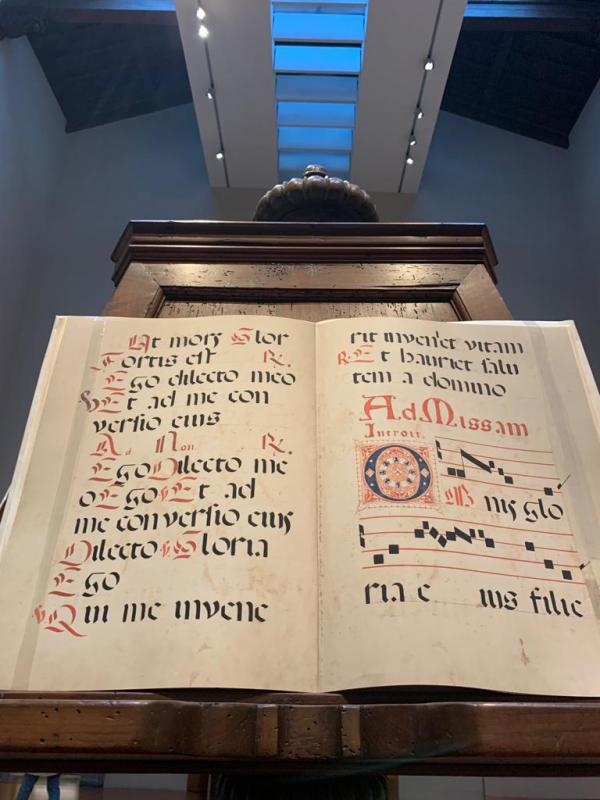 Ut mors Glor
Fortis est R.
Ego dilecto meo
Et ad me con
versio eius
Ad Non. R.
Ego Dilecto me
o Ego Et ad
me conversio eius
Dilecto Gloria
Ego
Qui me invene
rit inveniet vitam
R. Et hauriet salu
tem a domino
Ad Missam
Introit.
OMnis glo
ria e ius filie